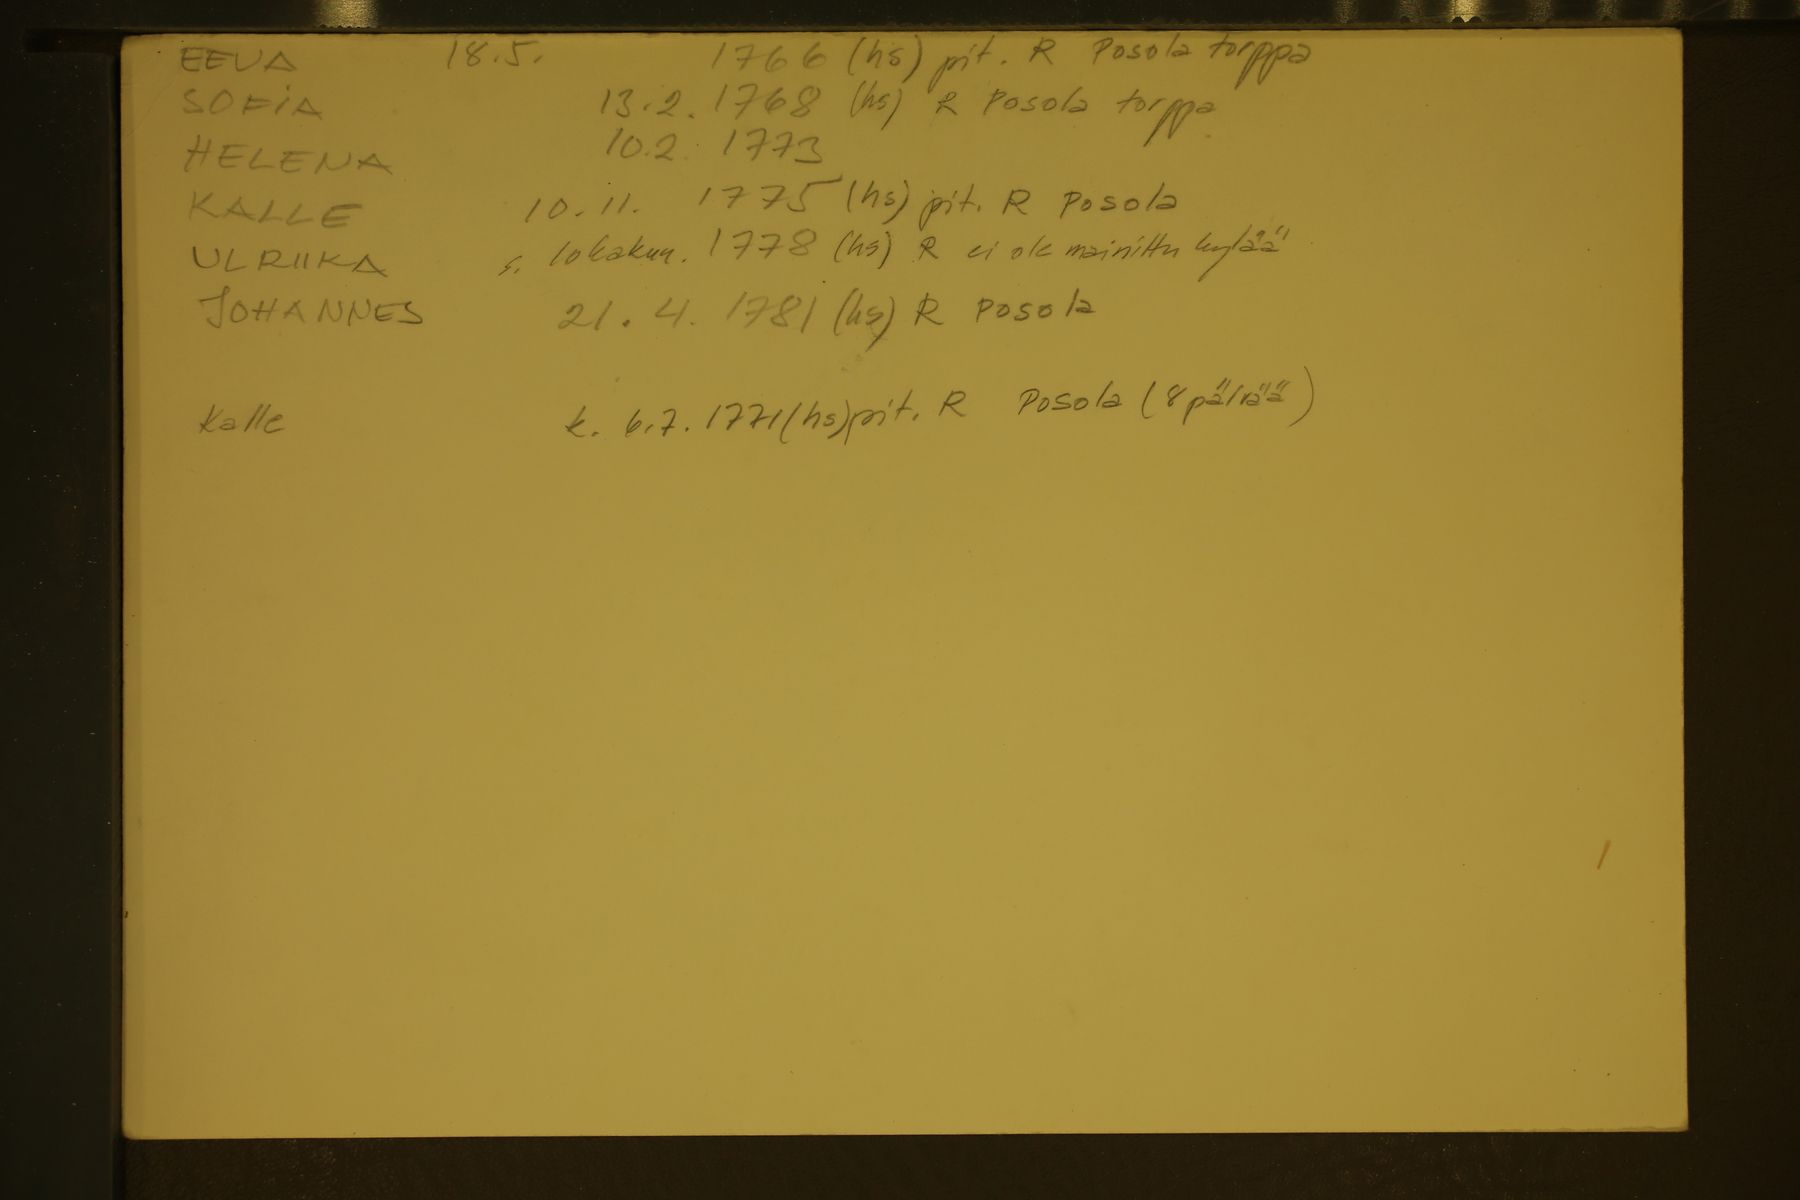 EEVA 18.5. 1766 (hs) pit. R Posola torppa
SOFIA 13.2. 1768 (hs) R Posola torppa
HELENA 10.2. 1773
KALLE 10.11. 1775 (hs) pit. R Posola
ULRIIKA s. lokakuu. 1778 (hs) R ei ole mainittu kylää
JOHANNES 21.4. 1781 (hs) R Posola
Kalle k. 6.7. 1771 (hs) pit. R Posola (8 päivää)